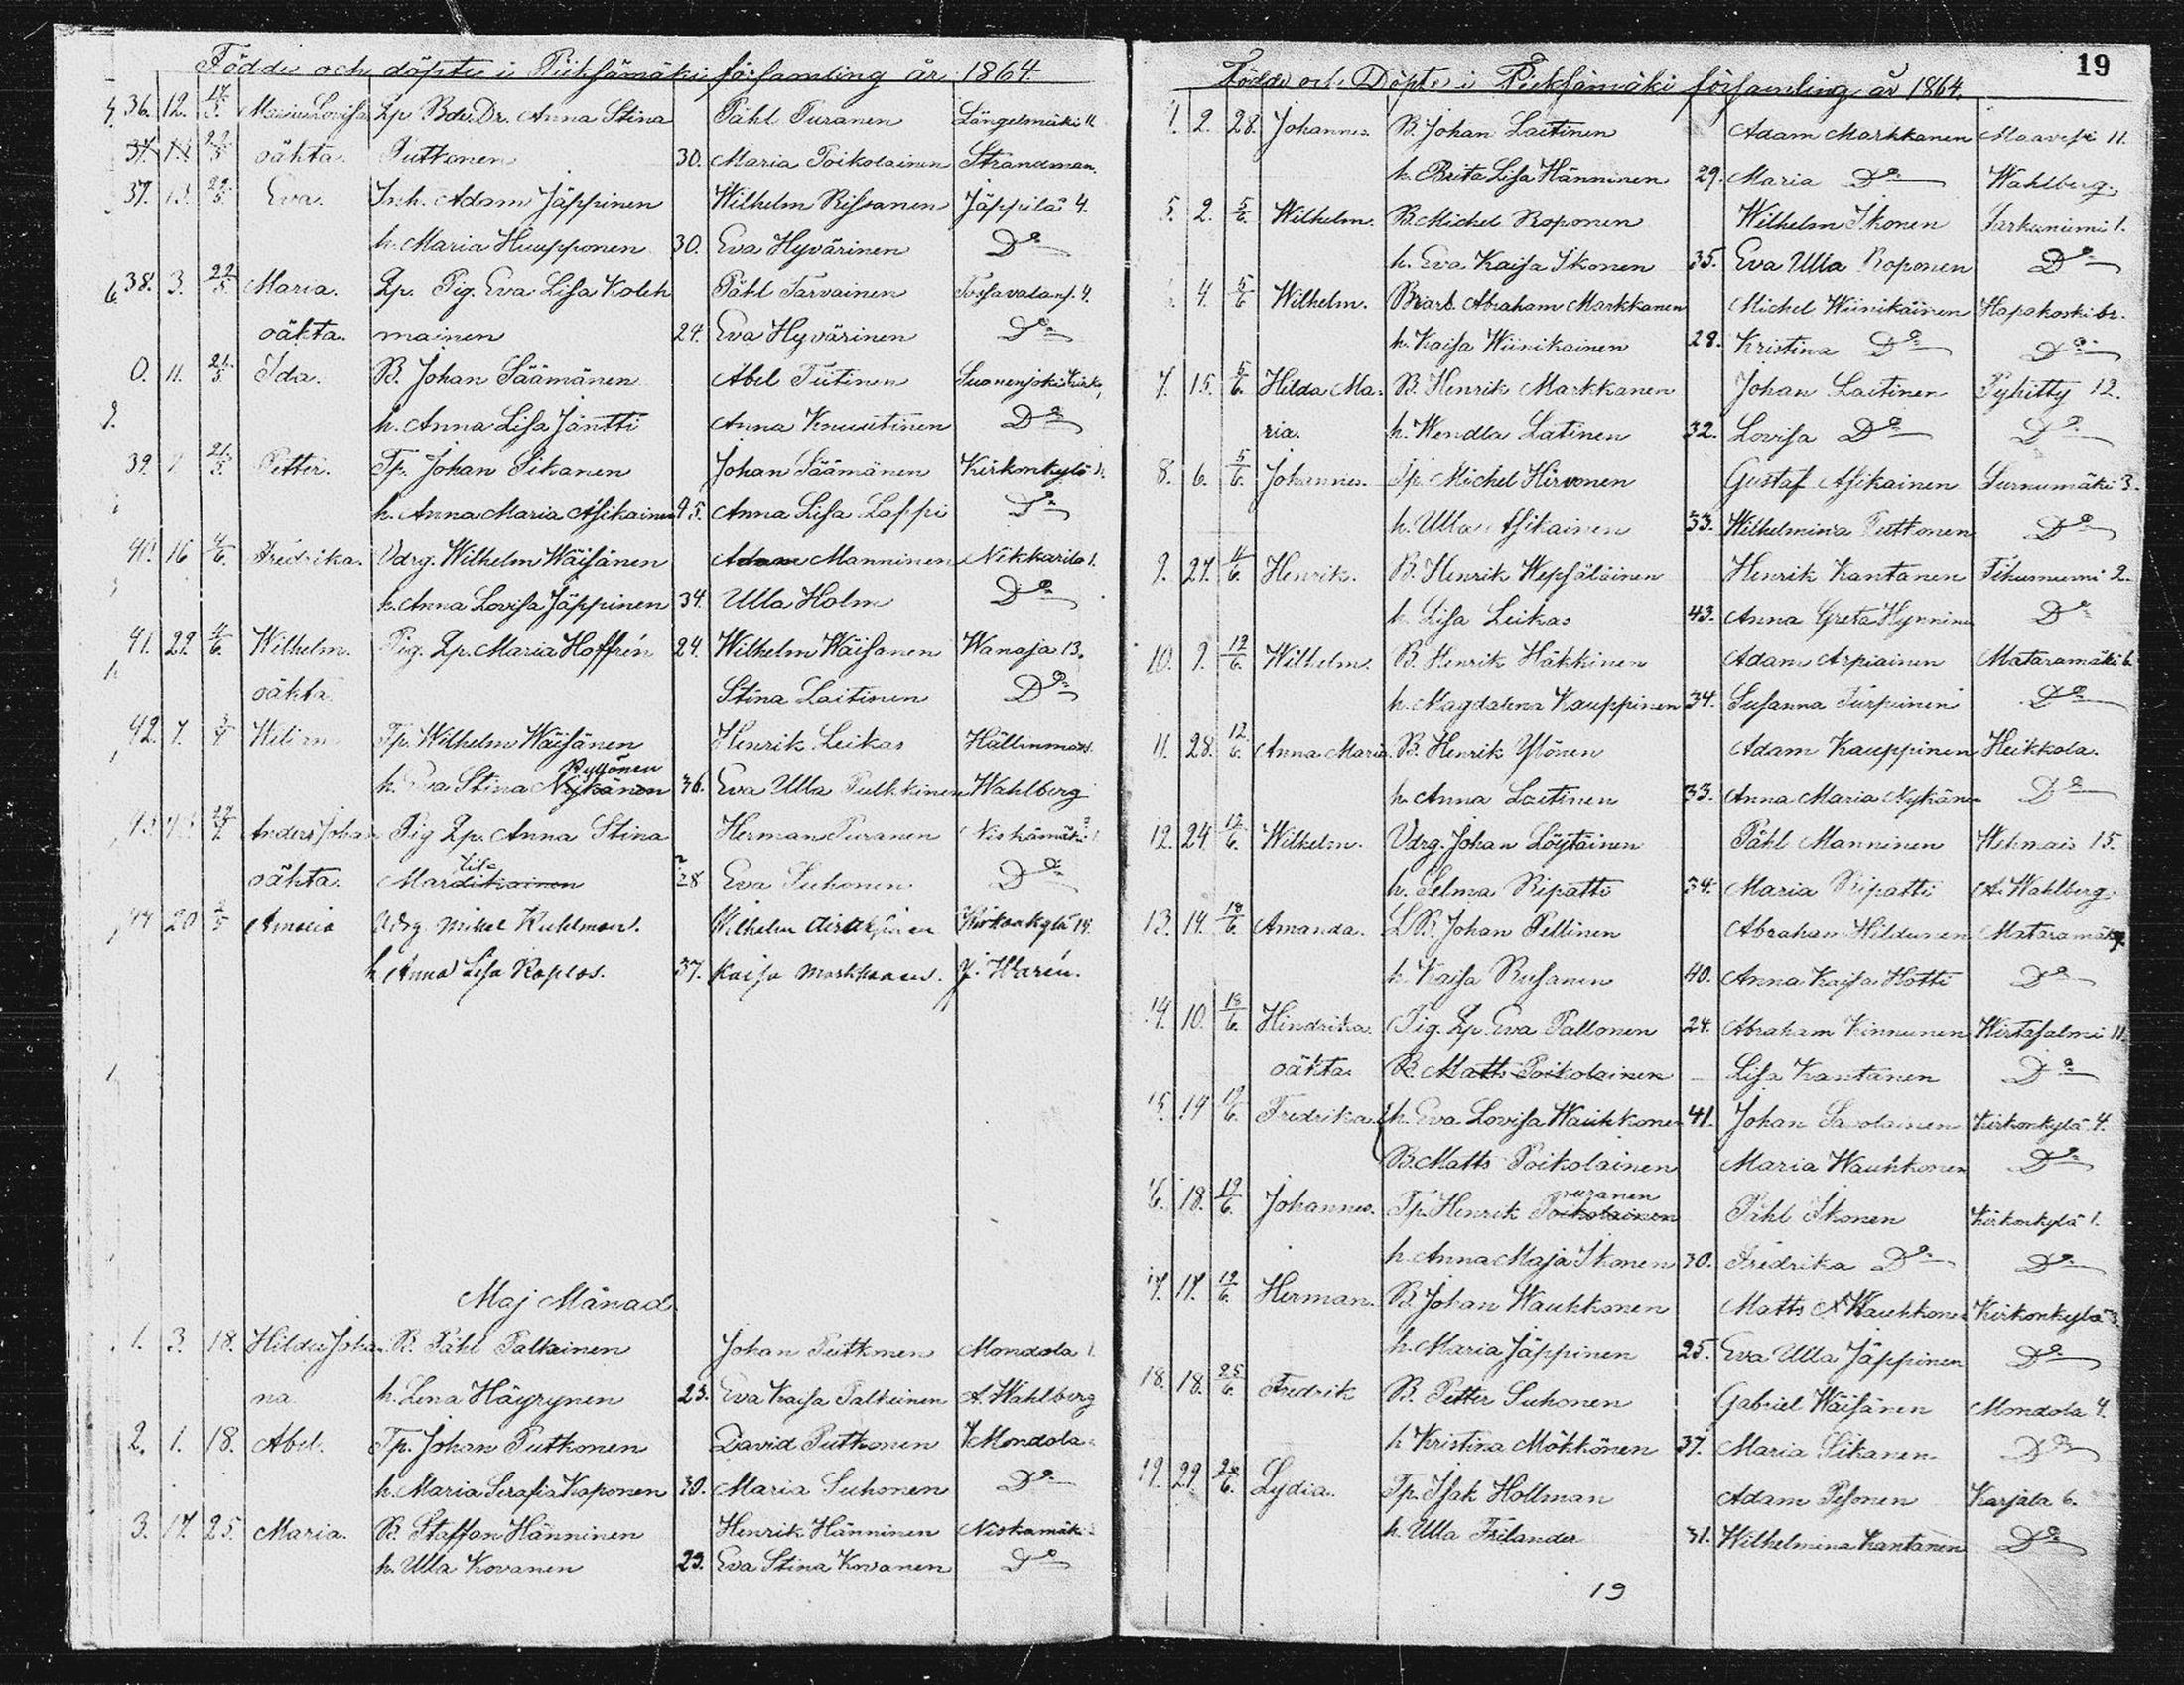 Födde och döpte i Pieksämäki församling år 1864
36. 12. 17/5. Maria Lovisa Lp. Bdr. Dr. Anna Stina Påhl Puranen Längelmäki 11.
oäkta. Putkonen 30. Maria Poikolainen Strandman.
37. 13. 22/5. Eva. Inh. Adam Jäppinen Wilhelm Rissanen Jäppilä 4.
h. Maria Huupponen 30. Eva Hyvärinen Do
38. 3. 22/5 Maria. Lp. Pig. Eva Lisa Koleh Påhl Tarvainen 4.
oäkta. mainen 24. Eva Hyvärinen Do
0. 11. 21/5 Ida. B. Johan Säämänen Abel Tiitinen Suonenjoki
h. Anna Lisa Jäntti Anna Knuutinen Do
39. 21/5. Petter. Tp. Johan Sikanen Johan Säämänen Kirkonkylä
h. Anna Maria Asikainen 45. Anna Lisa Lappi Do
40. 16 4/6. Fredrika. Vdrg. Wilhelm Wäisänen Adam Manninen Nikkarila 1.
h. Anna Lovisa Jäppinen 34. Ulla Holm Do
41. 29. 4/6. Wilhelm. Pig. Lp. Maria Hoffrén 24. Wilhelm Wäisänen Wanaja 13.
oäkta Stina Laitinen Do
42. 7. Tp. Wilhelm Wäisänen Henrik Leikas
Ryttönen
h. Eva Stina Nykänen 36. Eva Ulla Pulkkinen Wahlberg
Anders Johan Pig Lp. Anna Stina Herman Puranen Niskamäki
oäkta. 28 Eva Suhonen Do
44 20 Amalia Vdrg. Mikel Kuhlman. Wilhelm Kirkonkylä 14.
h Anna Lisa Roplas. 37. Kaisa Markkanen. J. Harén.
Maj Månad
1. 3. 18. Hilda Joha B. Påhl Palkainen Johan Putkonen Mondola 1.
na h. Lena Häyrynen 23. Eva Kaisa Palkeinen A. Wahlberg
2. 1. 18. Abel. Tp. Johan Putkonen David Putkonen Mondola
h. Maria Serafia Kaponen 30. Maria Suhonen Do
3. 17. 25. Maria. B. Staffan Hänninen Henrik Hänninen Niskamäki
h. Ulla Kovanen 29. Eva Stina Kovanen Do
19
Födde och Döpte i Pieksämäki församling år 1864.
2. 28. Johannes. B. Johan Laitinen Adam Markkanen Maavesi 11.
h. Brita Lisa Hänninen 29. Maria Do Wahlberg.
5. 2. 5/6. Wilhelm. B. Michel Roponen Wilhelm Ikonen Sarkaniemi 1.
h. Eva Kaisa Ikonen 35. Eva Ulla Roponen Do
4. 5/6 Wilhelm. Abraham Markkanen Michel Wiinikäinen Hapakoski
h. Kaisa Wiinikainen 28. Kristina Do Do
7. 15. 5/6. Hilda Ma- B. Henrik Markkanen Johan Laitinen Pyhitty 12.
ria. h. Wendla Latinen 32. Lovisa Do Do
8. 6. 5/6. Johannes. Tp. Michel Hirvonen Gustaf Asikainen Surnumäki 3.
h. Ulla Asikainen 33. Wilhelmina Putkonen Do
9. 27. Henrik. B. Henrik Wepsäläinen Henrik Kantanen Tihuniemi 2.
h. Lisa Leikas 43. Anna Greta Hynninen Do
10. 9. 12/6. Wilhelm. B. Henrik Häkkinen Adam Arpiainen Mataramäki 6.
h. Magdalena Kauppinen 34. Susanna Turpeinen Do
11. 28. 12/6. Anna Maria B. Henrik Ylönen Adam Kauppinen Heikkola.
h. Anna Laitinen 33. Anna Maria Nykänen Do
12. 24 12/6. Wilhelm. Vdrg. Johan Löytäinen Påhl Manninen Wehmais 15.
h. Selma Ripatti 34. Maria Ripatti A. Wahlberg.
13. 14. 18/6. Amanda. LB. Johan Pellinen Abraham Hildunen Mataramäki
h. Kaisa Rusanen 40. Anna Kaisa Hotti Do
14. 10. 18/6. Hindrika. Pig. Lp. Eva Pallonen 24. Abraham Kinnunen Wirtasalmi 11
oäkta. B. Matts Poikolainen Lisa Kantanen Do
15. 19 19/6. Fredrika. h. Eva Lovisa Wauhkonen 41. Johan Savolainen Kirkonkylä 4.
B. Matts Poikolainen Maria Wauhkonen Do
uranen
16. 18. 19/6. Johannes. Tp. Henrik Poikolainen Påhl Ikonen Kirkonkylä 1.
h. Anna Maja Ikonen 30. Fredrika Do Do
17. 17. 19/6. Herman. B. Johan Wauhkonen Matts Wauhkonen Kirkonkylä 3.
h. Maria Jäppinen 25. Eva Ulla Jäppinen Do
18. 18. 25/6. Fredrik B. Petter Suhonen Gabriel Wäisänen Mondola 4.
h. Kristina Mökkönen 37. Maria Sikanen Do
19. 29. 26/6. Lydia. Tp. Isak Hollman Adam Pesonen Karjala 6.
h. Ulla Frilander 31. Wilhelmina Kantanen Do
19